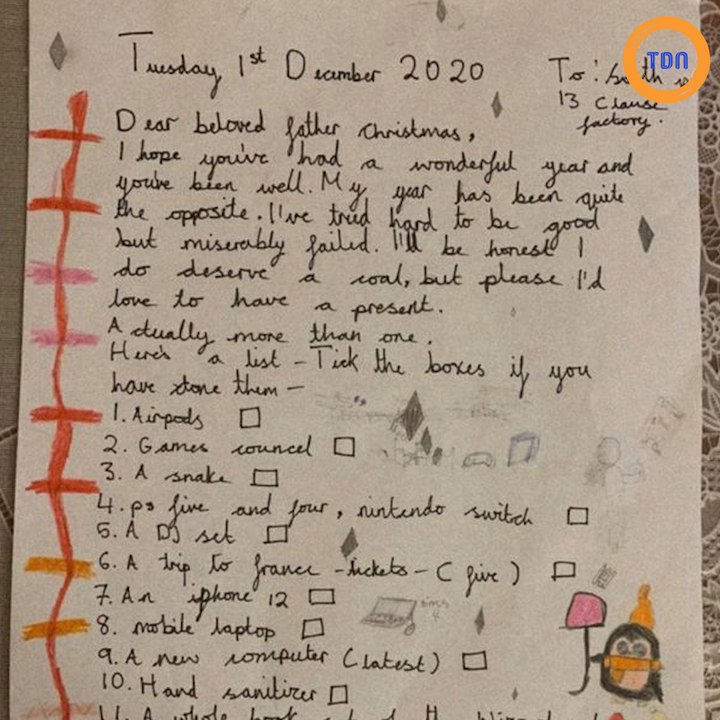 Tuesday, 1st December 2020
To: South
13 Clause
factory.
TDN
Dear beloved father christmas,
I hope you've had a wonderful year and
you've been well. My year has been quite
the opposite. I've tried hard to be good
but miserably failed. I'll be honest I
do deserve a coal, but please I'd
love to have a present.
Actually more than one.
Here's a list - Tick the boxes if you
have done them -
1. Airpods
2. Games councel
3. A snake
4. ps five and four, nintendo switch
5. A DJ set
6. A trip to france - tickets - (five)
7. An iphone 12
8. mobile laptop
9. A new computer (latest)
10. Hand sanitizer
11. A whole book set of the